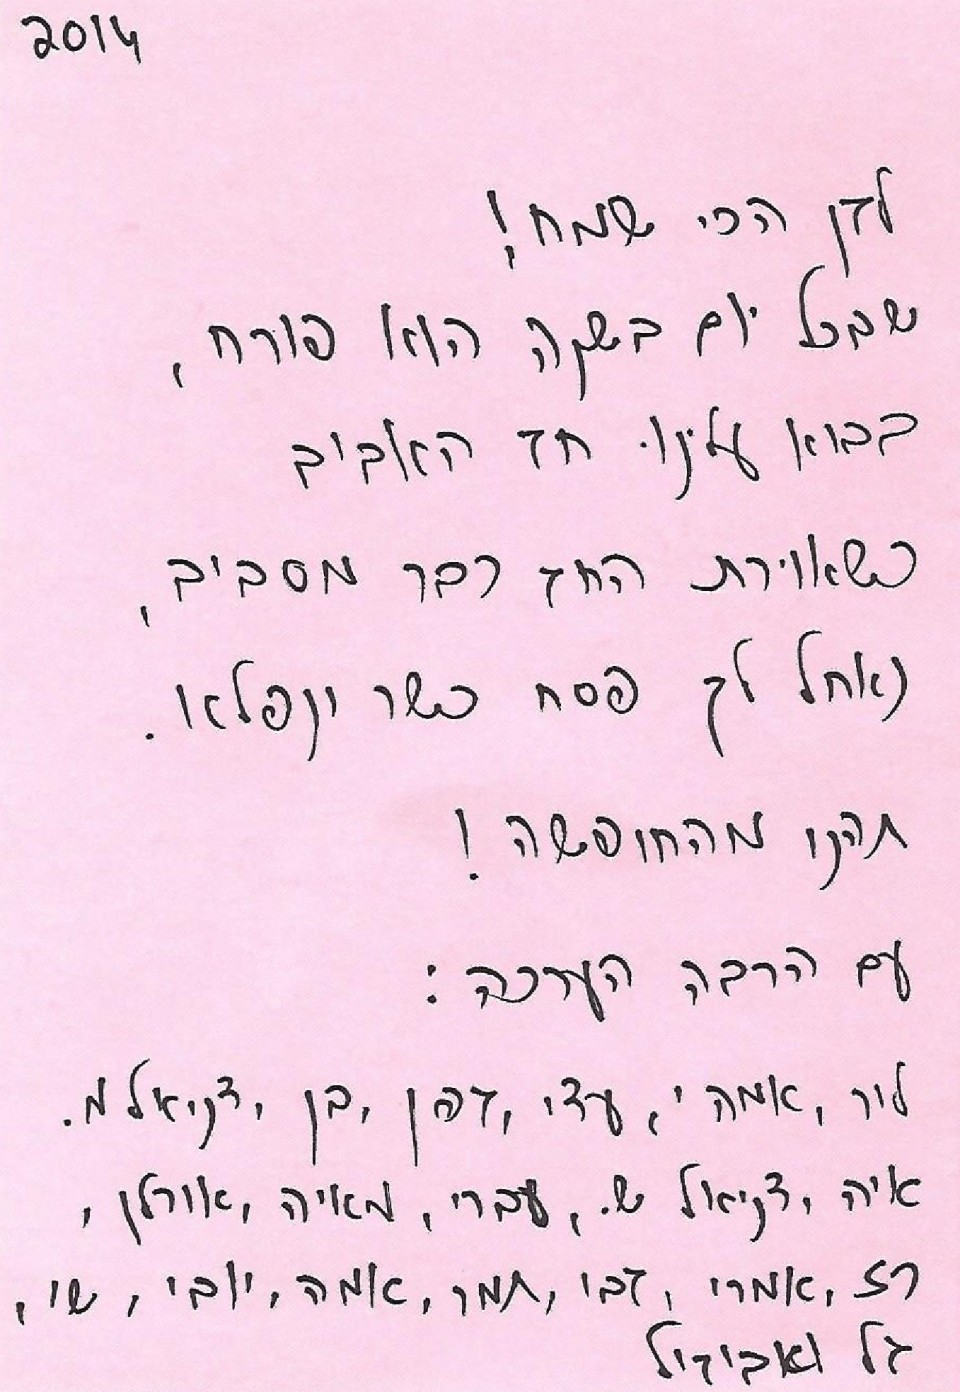 2014
לדן הכי שמח!
שבכל יום בשקה הוא פורח,
בבוא עלינו חג האביב
כשאוירת החג כבר מסביב,
נאחל לך פסח כשר ונפלא.
תהנו מהחופשה!
עם הרבה הערכה:
ליר, אמה י, עדי, דפן, בן, דניאל מ.
איה, דניאל ש., עברי, מאיה, אורלן,
רז, אמרי, דבי, תמר, אמה, יובי, שי,
גל ואביגיל